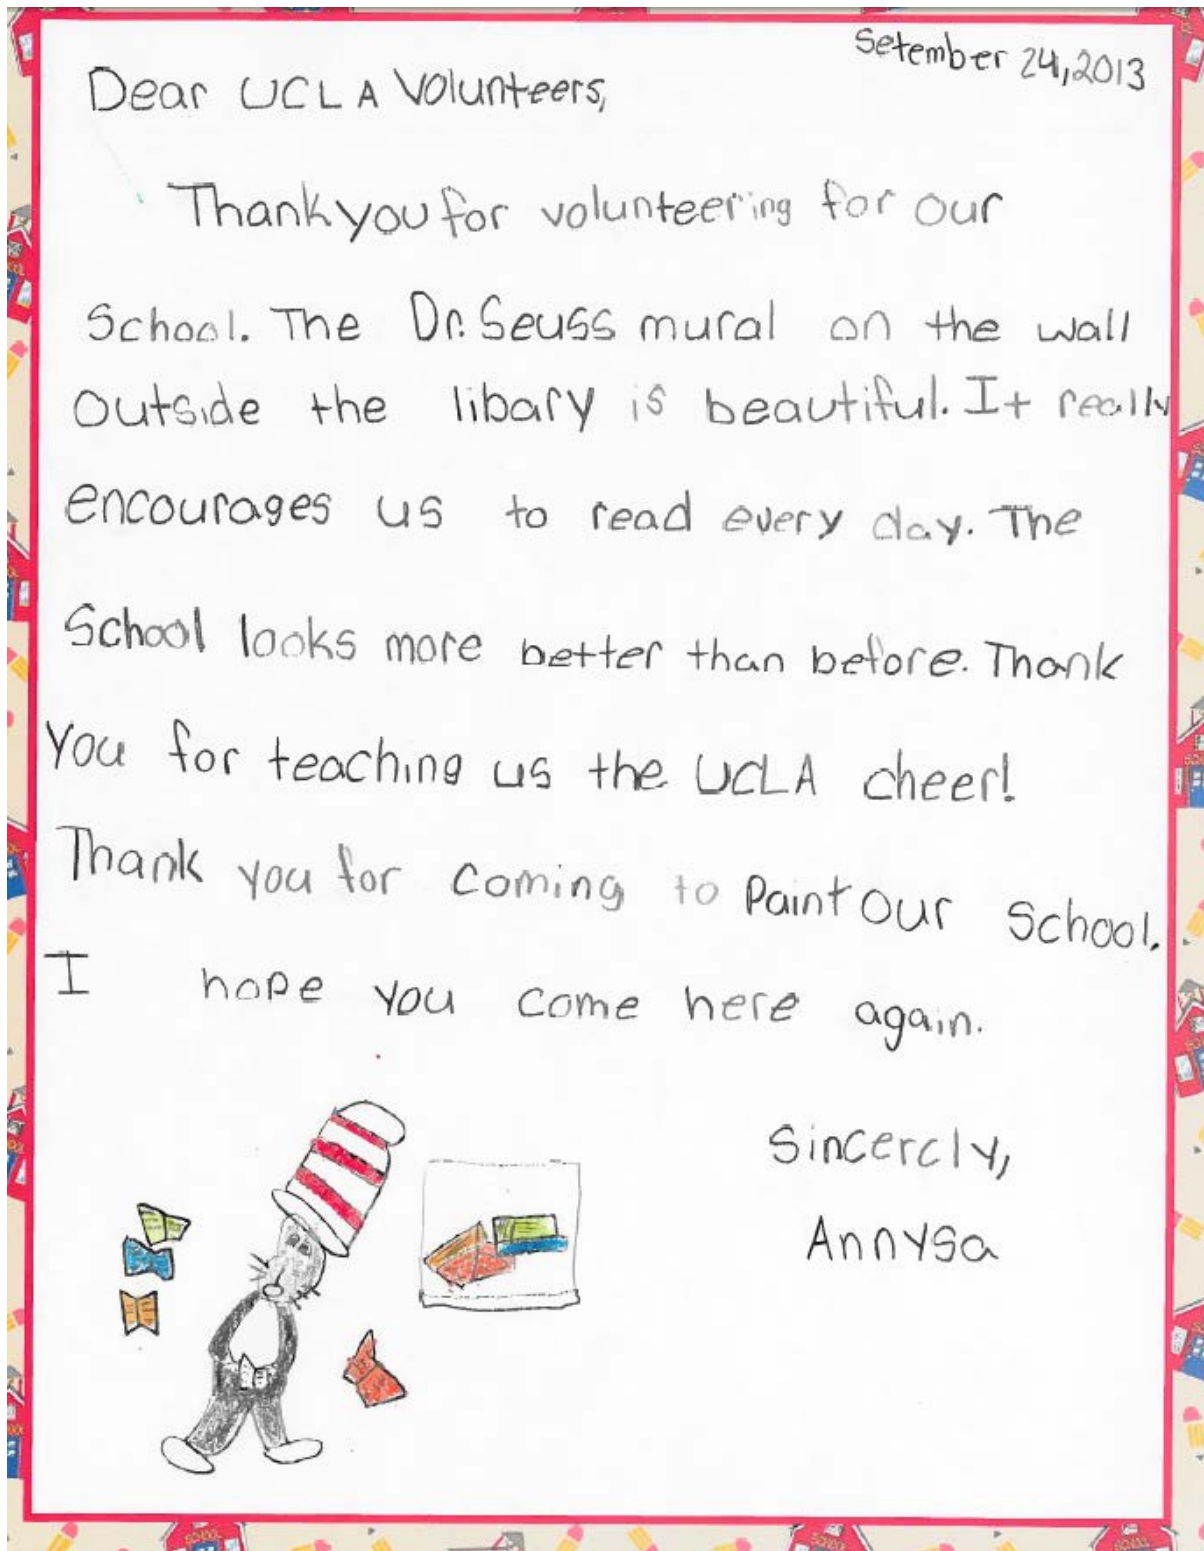 Setember 24, 2013
Dear UCLA Volunteers,
Thank you for volunteering for our
School. The Dr. Seuss mural on the wall
outside the libary is beautiful. It really
encourages us to read every day. The
School looks more better than before. Thank
you for teaching us the UCLA cheer!
Thank you for coming to Paint our School.
I hope you come here again.
Sincerely,
Annysa
SCHOOL
SCHOOL
SCHOOL